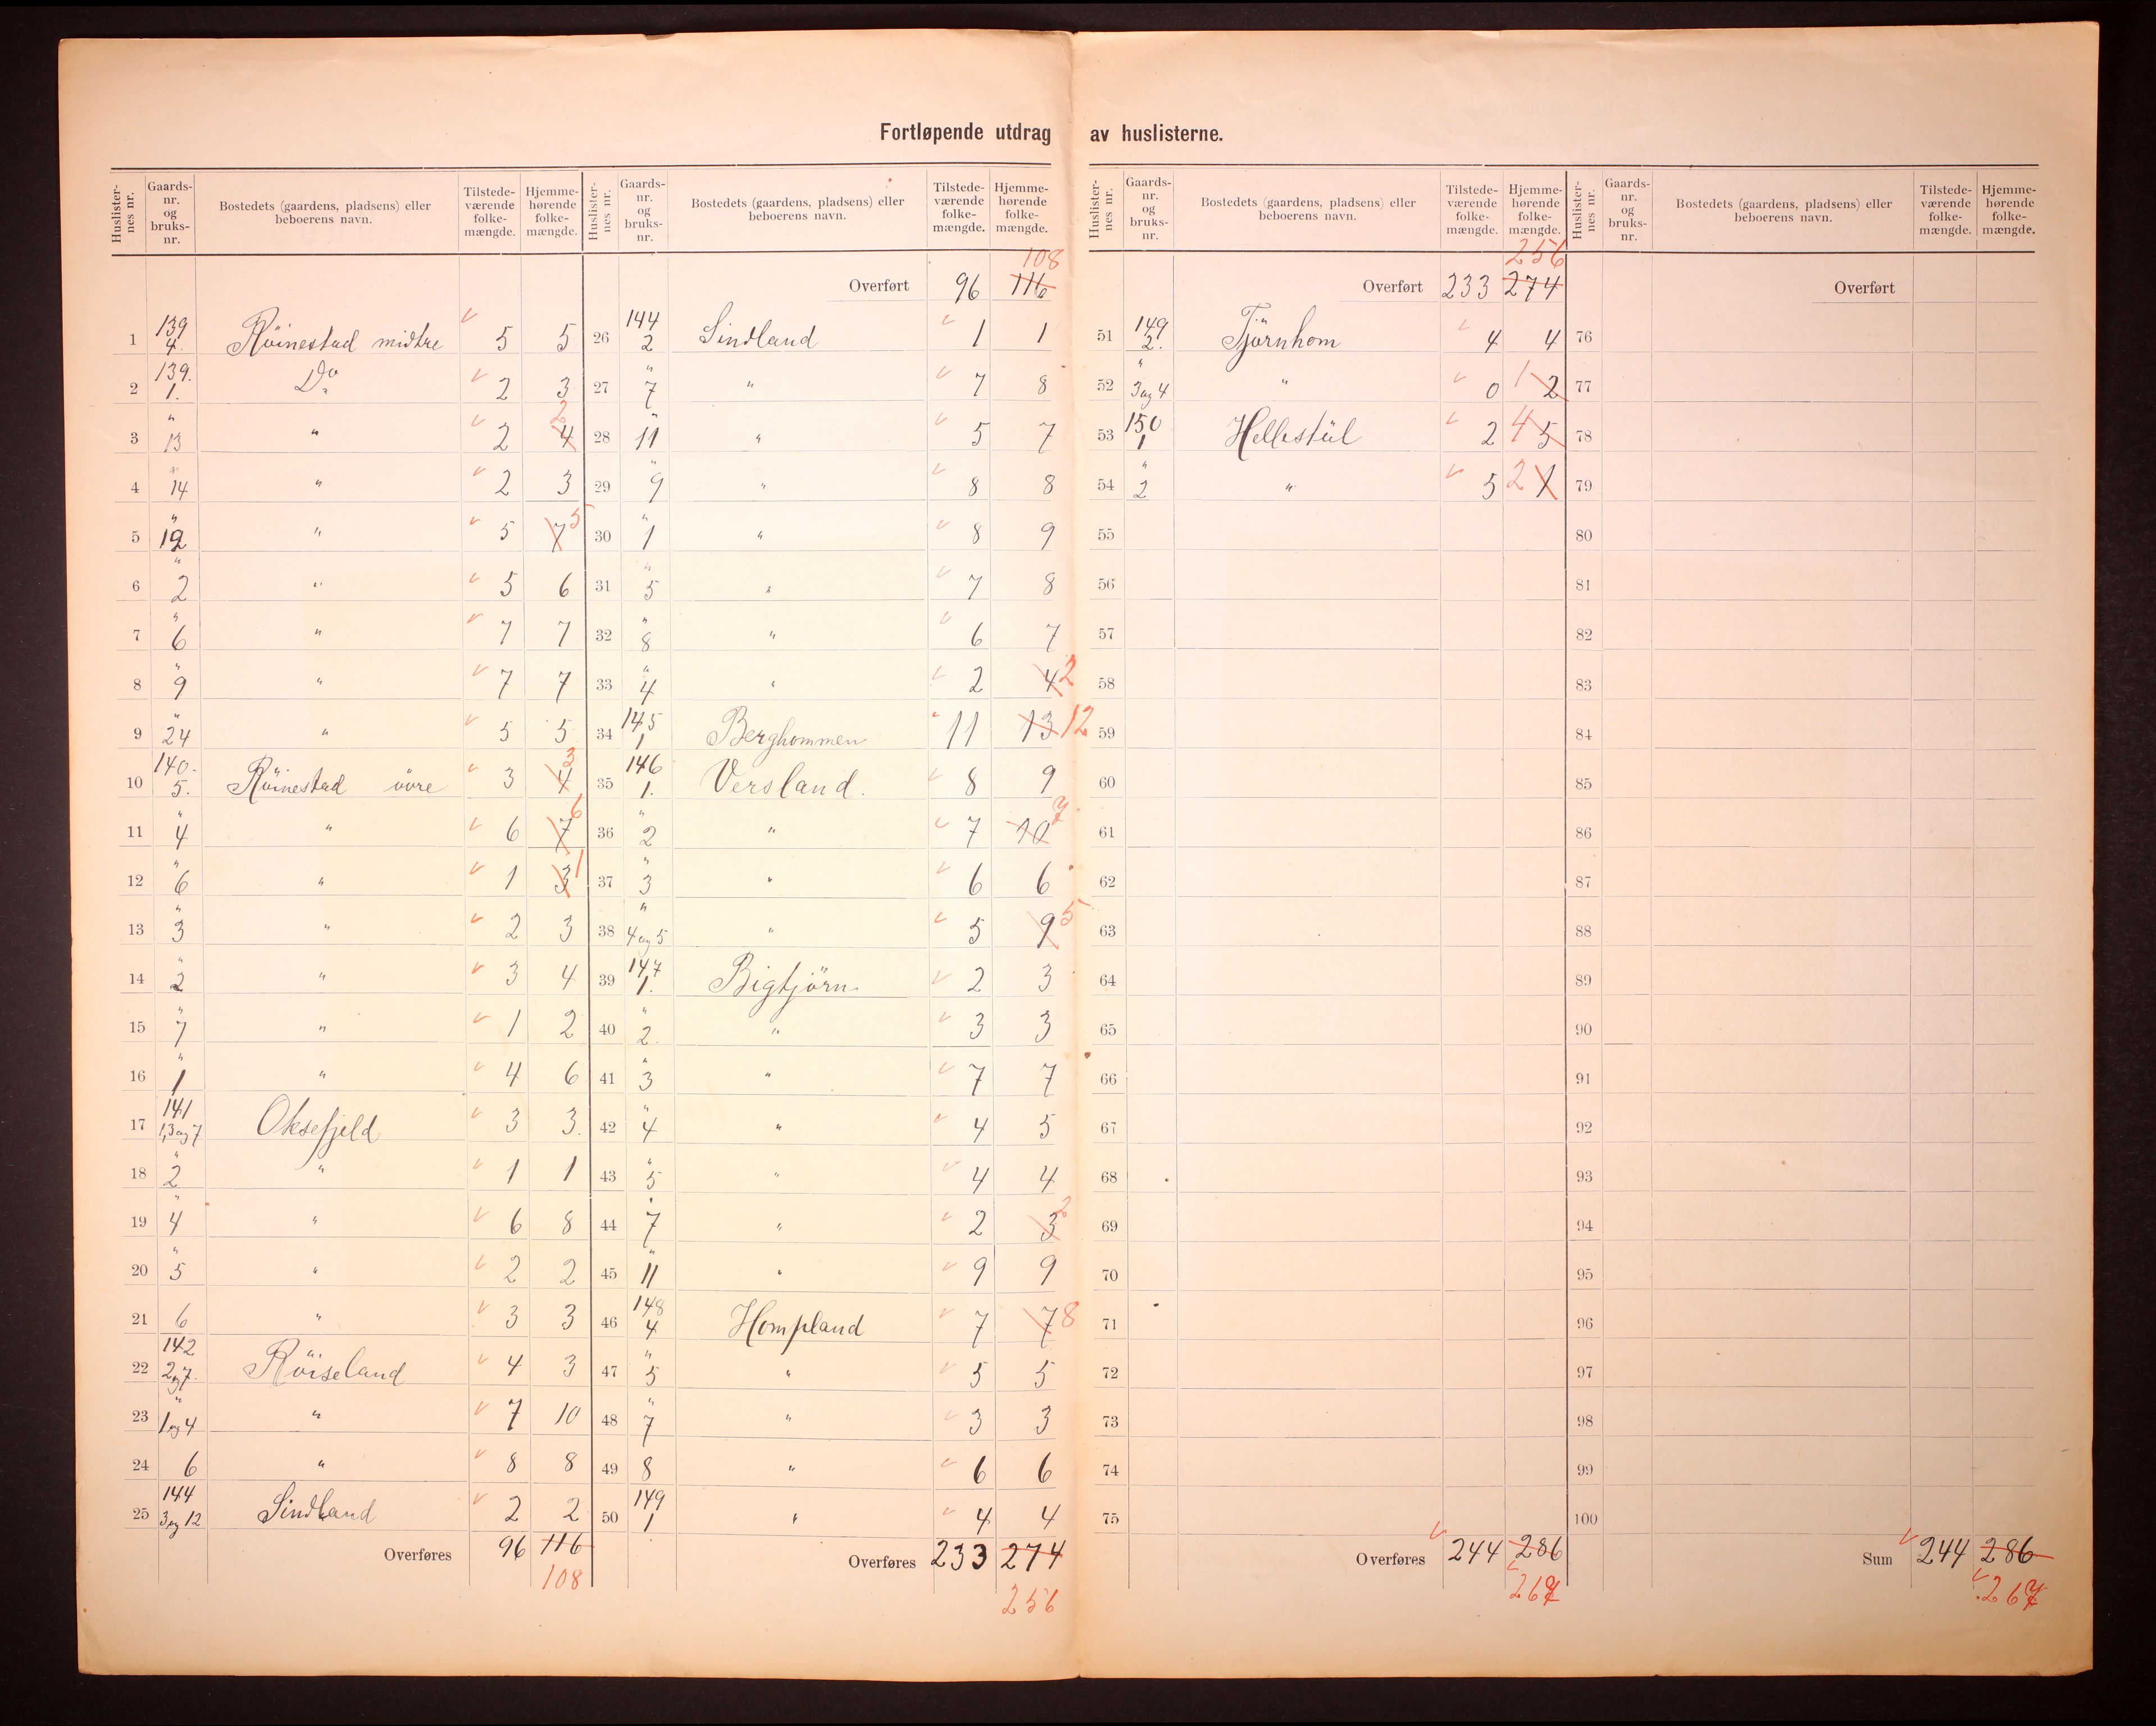 Fortløpende utdrag av huslisterne.
Huslisternes nr. Gaards-nr. og bruks-nr. Bostedets (gaardens, pladsens) eller beboerens navn. Tilstedeværende folkemængde. Hjemmehørende folkemængde.
1 139 4. Röinestad midtre 5 5
2 139. 1. Do 2 3
3 " 13 " 2 4 2
4 " 14 " 2 3
5 " 12 " 5 7 5
6 " 2 " 5 6
7 " 6 " 7 7
8 " 9 " 7 7
9 " 24 " 5 5
10 140. 5. Röinestad övre 3 4 3
11 " 4 " 6 7 6
12 " 6 " 1 3 1
13 " 3 " 2 3
14 " 2 " 3 4
15 " 7 " 1 2
16 " 1 " 4 6
17 141 1,3 og 7 Oksefjeld 3 3.
18 " 2 " 1 1
19 " 4 " 6 8
20 " 5 " 2 2
21 6 " 3 3
22 142 2 og 7. Röiseland 4 3
23 " 1 og 4 " 7 10
24 6 " 8 8
25 144 3 og 12 Sindland 2 2
Overføres 96 116
108
Huslisternes nr. Gaards-nr. og bruks-nr. Bostedets (gaardens, pladsens) eller beboerens navn. Tilstedeværende folkemængde. Hjemmehørende folkemængde.
108
Overført 96 116
26 144 2 Sindland 1 1
27 " 7 " 7 8
28 " 11 " 5 7
29 " 9 " 8 8
30 " 1 " 8 9
31 " 5 " 7 8
32 " 8 " 6 7
33 " 4 " 2 4 2
34 145 1 Berghommen 11 13 12
35 146 1. Versland. 8 9
36 " 2 " 7 10 7
37 " 3 " 6 6
38 " 4 og 5 " 5 9 5
39 147 1. Bigtjörn 2 3
40 " 2. " 3 3
41 " 3 " 7 7
42 " 4 " 4 5
43 " 5 " 4 4
44 " 7 " 2 3 2
45 " 11 " 9 9
46 148 4 Hompland 7 7 8
47 " 5 " 5 5
48 " 7 " 3 3
49 8 " 6 6
50 149 1 " 4 4
Overføres 233 274
256
Huslisternes nr. Gaards-nr. og bruks-nr. Bostedets (gaardens, pladsens) eller beboerens navn. Tilstedeværende folkemængde. Hjemmehørende folkemængde.
256
Overført 233 274
51 149 2. Tjörnhom 4 4
52 " 3 og 4 " 0 1 2
53 150 1 Hellestül 2 4 5
54 " 2 " 5 2 1
55
56
57
58
59
60
61
62
63
64
65
66
67
68
69
70
71
72
73
74
75
Overføres 244 286
267
Huslisternes nr. Gaards-nr. og bruks-nr. Bostedets (gaardens, pladsens) eller beboerens navn. Tilstedeværende folkemængde. Hjemmehørende folkemængde.
Overført
76
77
78
79
80
81
82
83
84
85
86
87
88
89
90
91
92
93
94
95
96
97
98
99
100
Sum 244 286
267